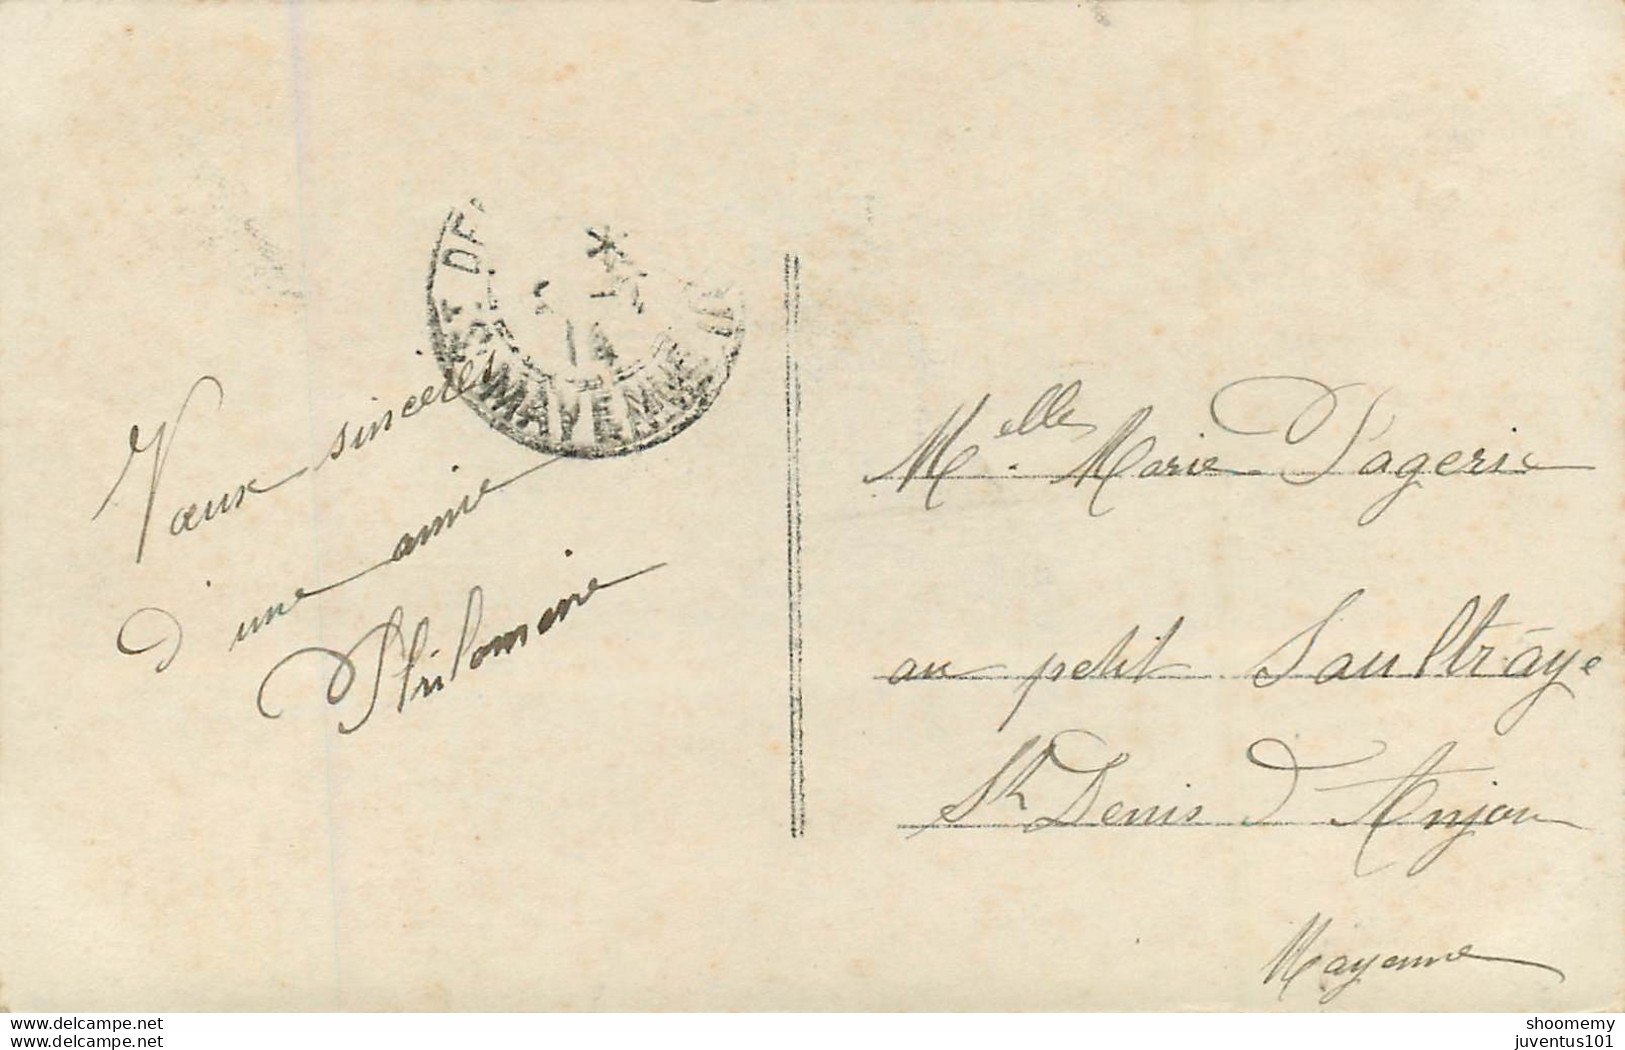 Vœux sincères
d'une amie
Philomène
ST DE
MAYENNE
14
Melle Marie Pagerie
au petit Saultraye
St Denis d'Anjou
Mayenne
www.delcampe.net
www.delcampe.net
shoomemy
juventus101